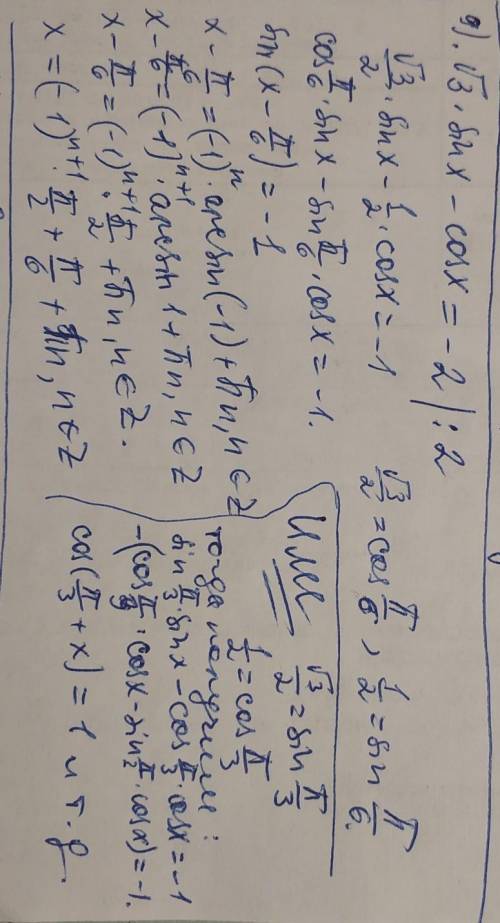 9). √3 · sin x − cos x = −2 | : 2
√3/2 · sin x − 1/2 · cos x = −1
√3/2 = cos π/6, 1/2 = sin π/6.
cos π/6 · sin x − sin π/6 · cos x = −1.
sin(x − π/6) = −1
x − π/6 = (−1)ⁿ · arcsin(−1) + πn, n ∈ Z
x − π/6 = (−1)ⁿ⁺¹ · arcsin 1 + πn, n ∈ Z
x − π/6 = (−1)ⁿ⁺¹ · π/2 + πn, n ∈ Z.
x = (−1)ⁿ⁺¹ · π/2 + π/6 + πn, n ∈ Z
Или √3/2 = sin π/3
1/2 = cos π/3
тогда получим:
sin π/3 · sin x − cos π/3 · cos x = −1
−(cos π/3 · cos x − sin π/2 · cos x) = −1.
cos(π/3 + x) = 1 и т.д.